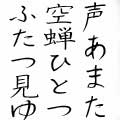 声あまた
空蝉ひとつ
ふたつ見ゆ